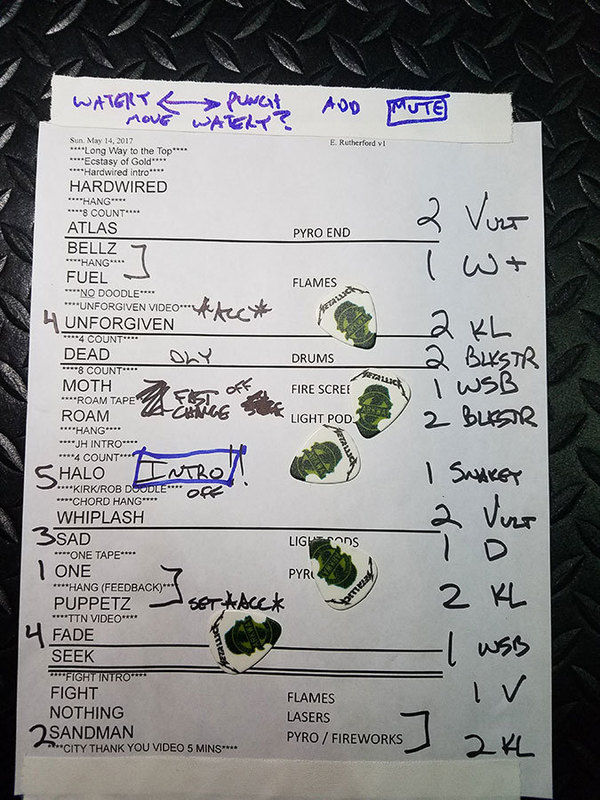 WATERY ←→ PUNCH ADD MUTE
MOVE WATERY?
Sun. May 14, 2017 E. Rutherford v1
****Long Way to the Top****
****Ecstasy of Gold****
****Hardwired intro****
HARDWIRED
****HANG****
****8 COUNT****
ATLAS PYRO END 2 VULT
BELLZ
****HANG**** 1 W+
FUEL FLAMES
****NO DOODLE****
****UNFORGIVEN VIDEO**** *ACC*
4 UNFORGIVEN 2 KL
****4 COUNT****
DEAD DLY DRUMS 2 BLKSTR
****8 COUNT****
MOTH FAST OFF FIRE SCREE 1 WSB
****ROAM TAPE**** CHANGE
ROAM LIGHT POD 2 BLKSTR
****HANG****
****JH INTRO****
****4 COUNT****
5 HALO INTRO!! 1 SNAKEY
****KIRK/ROB DOODLE**** OFF
****CHORD HANG****
WHIPLASH 2 VULT
3 SAD LIGHT PODS 1 D
****ONE TAPE****
1 ONE PYRO
****HANG (FEEDBACK)****
PUPPETZ SET *ACC* 2 KL
****TTN VIDEO****
4 FADE
SEEK 1 WSB
****FIGHT INTRO****
FIGHT FLAMES 1 V
NOTHING LASERS
2 SANDMAN PYRO / FIREWORKS 2 KL
****CITY THANK YOU VIDEO 5 MINS****
METALLICA
METALLICA
METALLICA
METALLICA
METALLICA